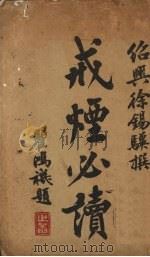 紹興徐錫驥撰
戒煙必讀
鴻禨題